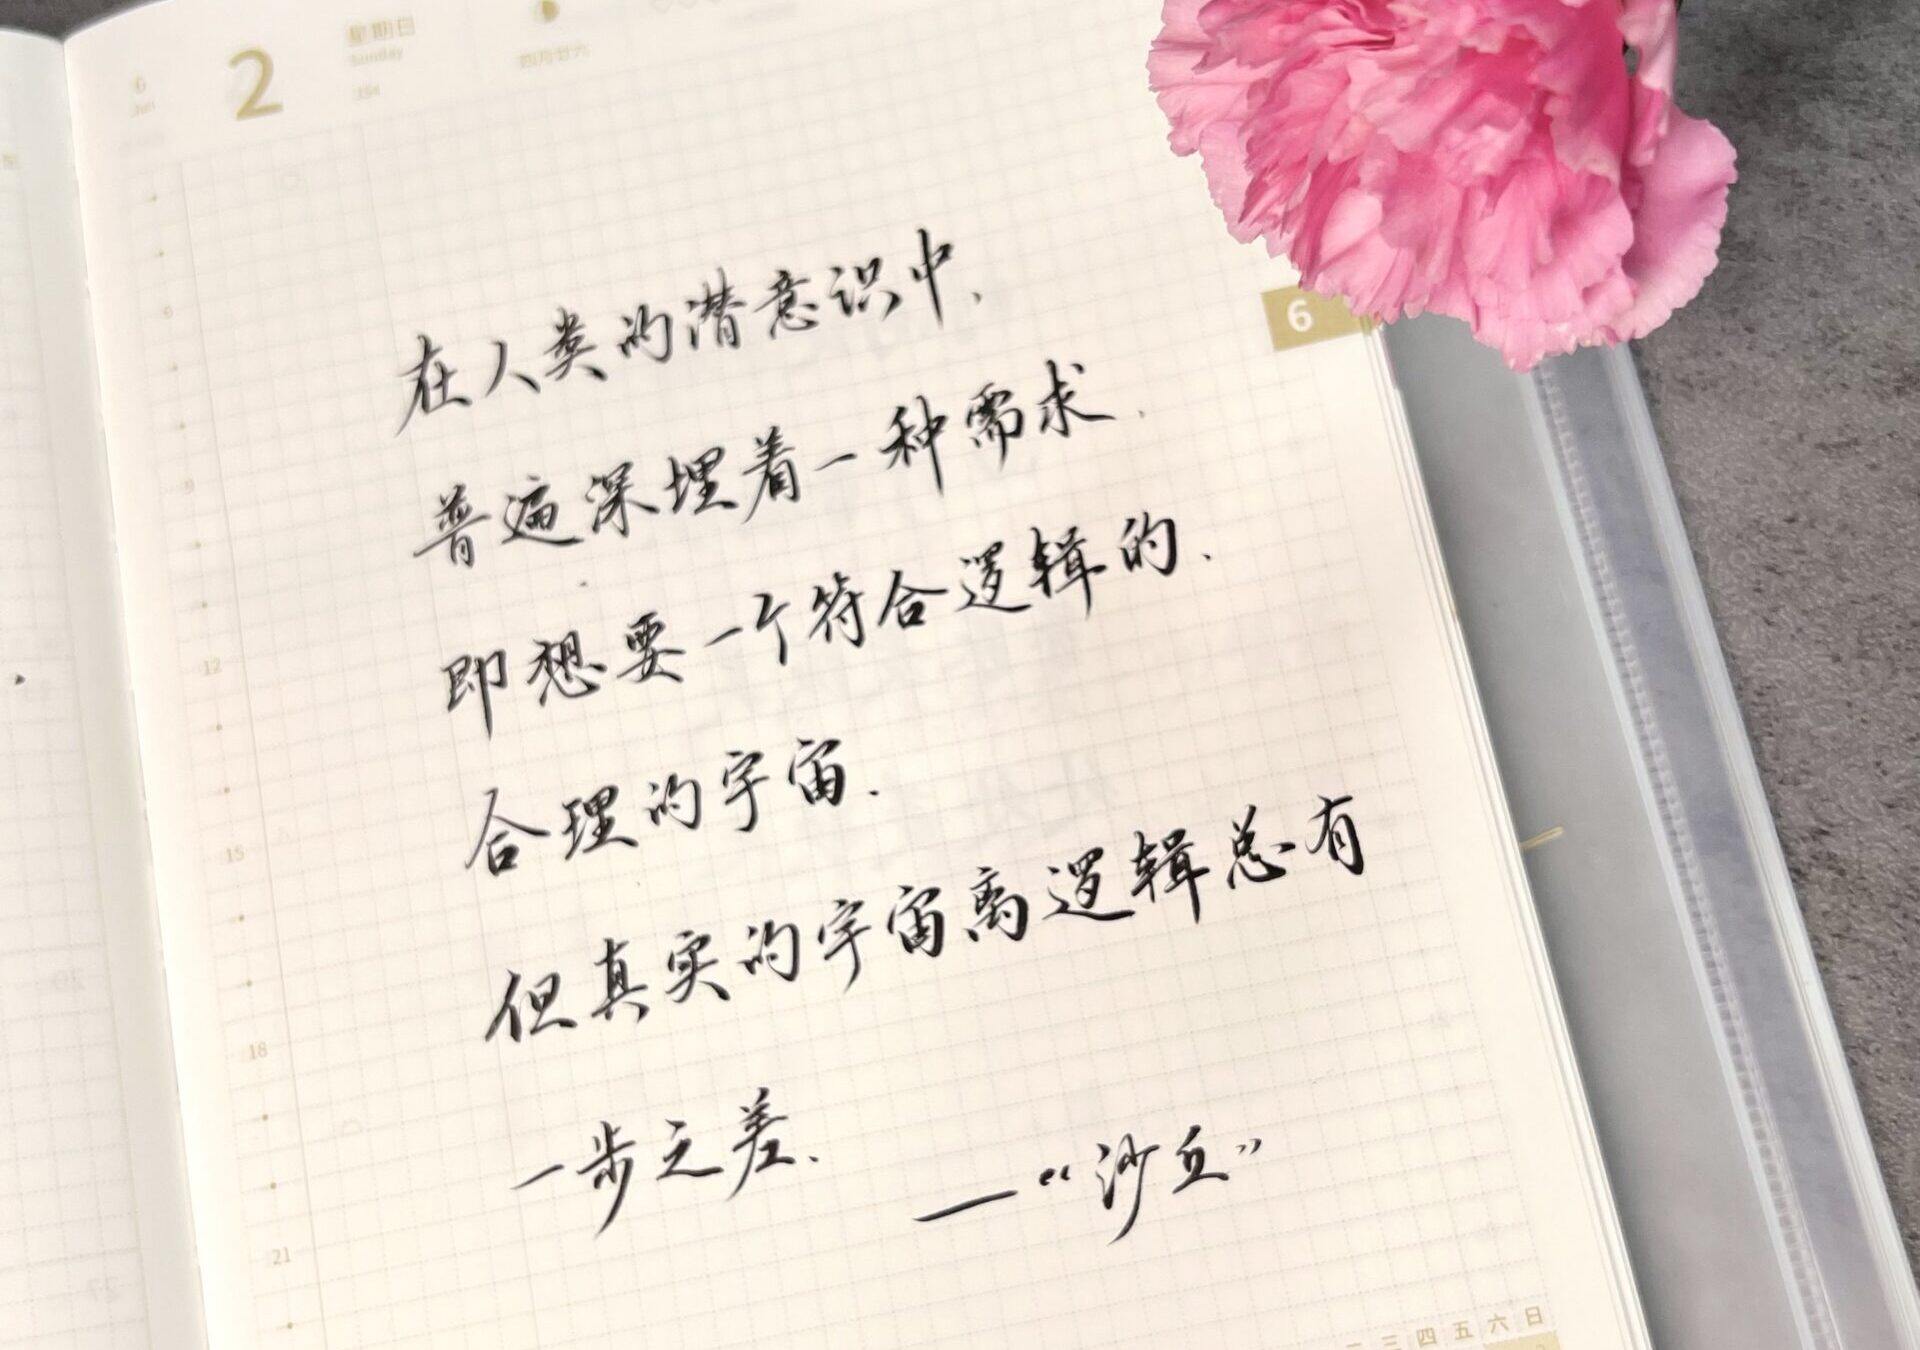 6
Jun
2
星期日
Sunday
四月廿六
在人类的潜意识中,
普遍深埋着一种需求.
即想要一个符合逻辑的.
合理的宇宙.
但真实的宇宙离逻辑总有
一步之差.
——“沙丘”
6
6
9
12
15
18
21
三 四 五 六 日